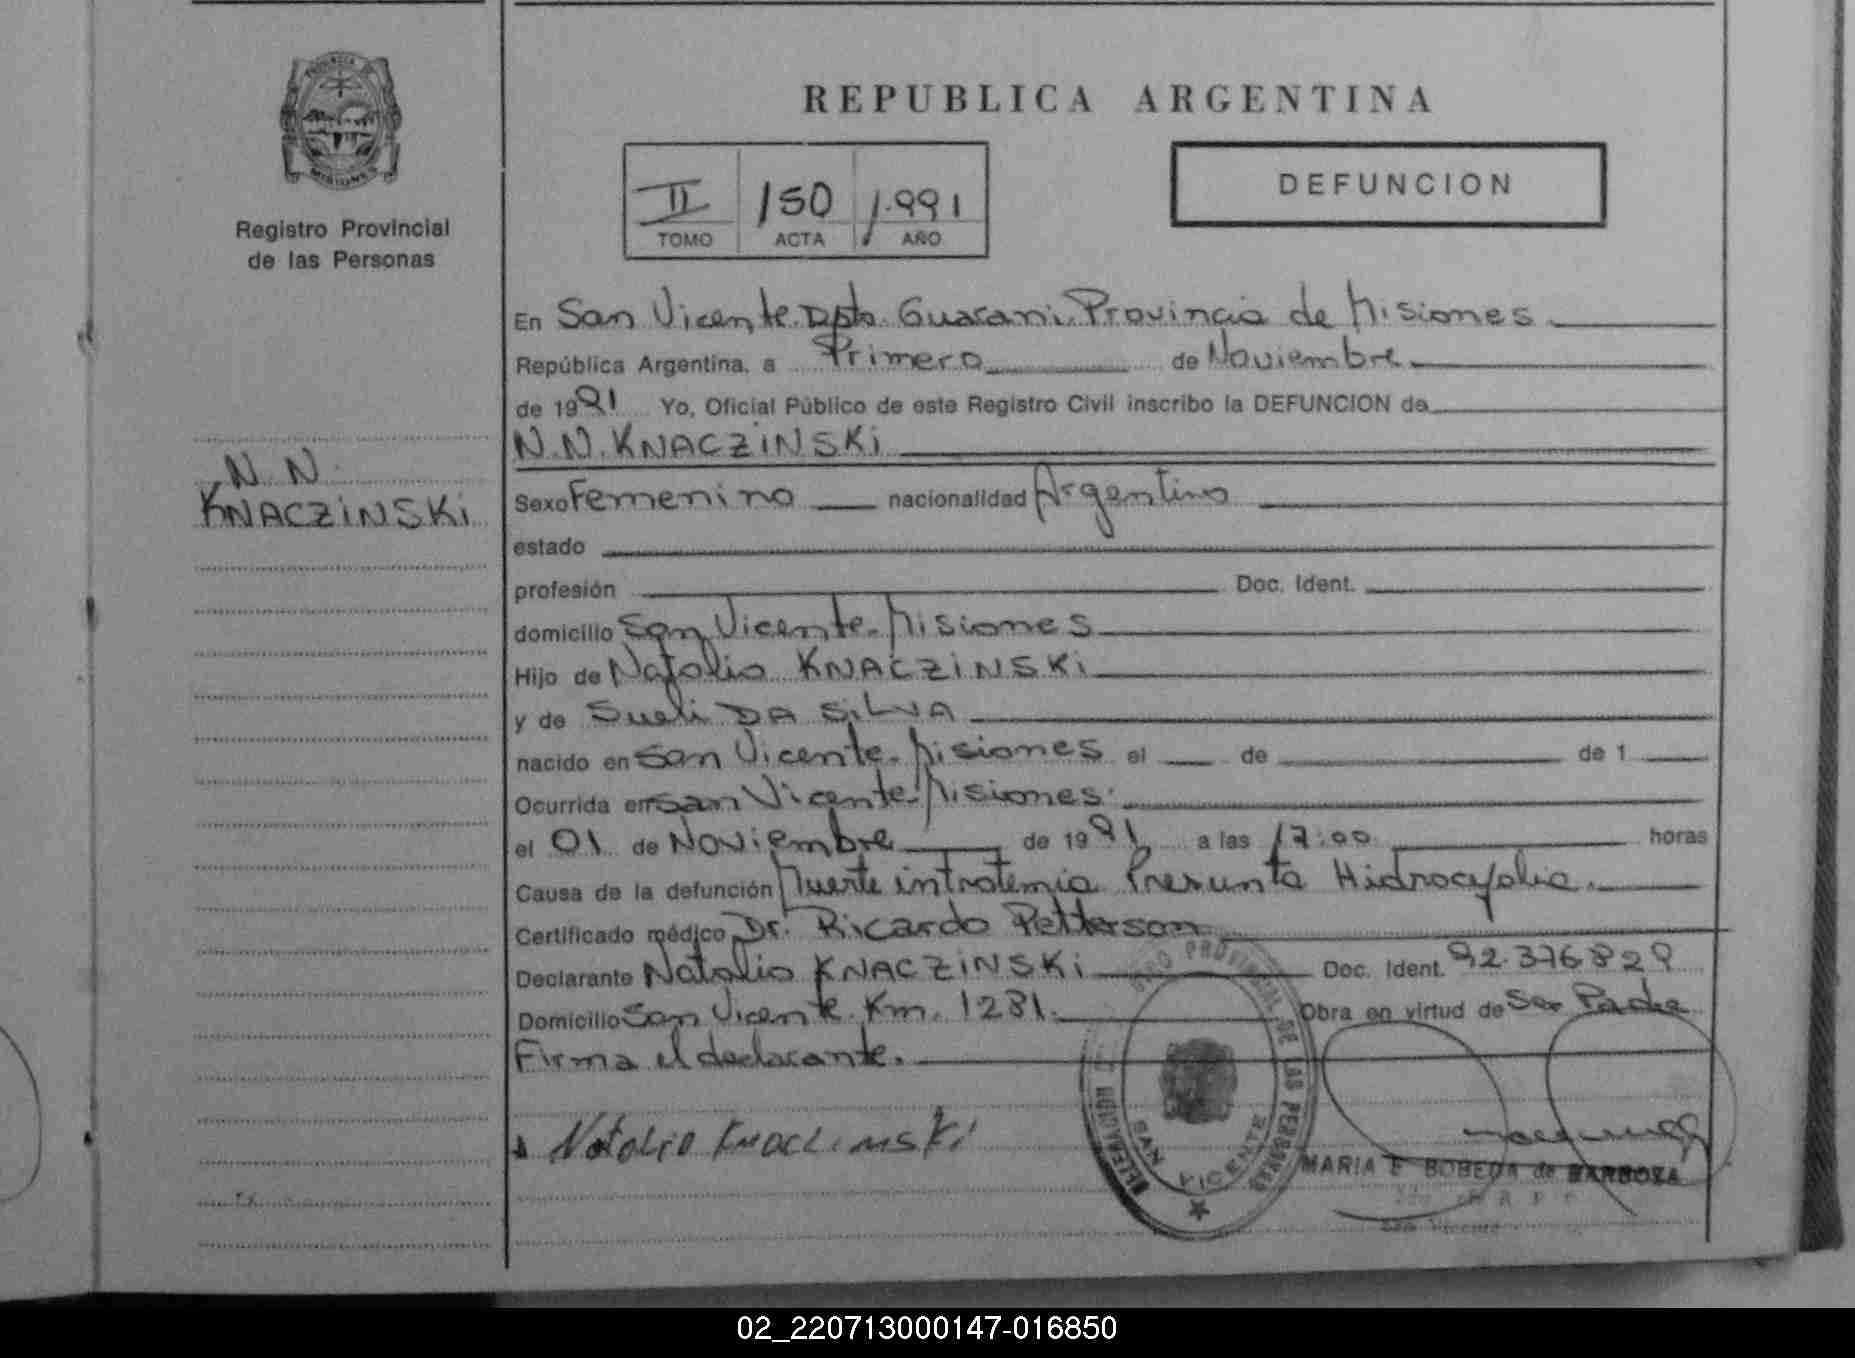 PROVINCIA DE
MISIONES
Registro Provincial
de las Personas
N N
KNACZiNSKi
REPUBLICA ARGENTINA
II 150 1.991
TOMO ACTA AÑO
DEFUNCION
En San Vicente. Dpto. Guarani. Provincia de Misiones.
República Argentina, a Primero de Noviembre
de 1991 Yo, Oficial Público de este Registro Civil inscribo la DEFUNCION de
N.N. KNACZiNSKi
Sexo Femenino nacionalidad Argentino
estado
profesión Doc. Ident.
domicilio San Vicente. Misiones
Hijo de Natalio KNACZiNSKi
y de Sueli DA SiLVA
nacido en San Vicente. Misiones el de de 1
Ocurrida en San Vicente. Misiones.
el 01 de Noviembre de 1991 a las 17:00 horas
Causa de la defunción Muerte Presunta
Certificado médico Dr. Ricardo Petterson
Declarante Natalio KNACZiNSKi Doc. Ident. 92.376829
Domicilio San Vicente. Km. 1281. Obra en virtud de Ser Padre
Firma el declarante.
Natalio
PROVINCIAL DE LAS PERSONAS
DELEGACION
SAN VICENTE
MARIA E BOBEDA de BARBOZA
San Vicente
02_220713000147-016850